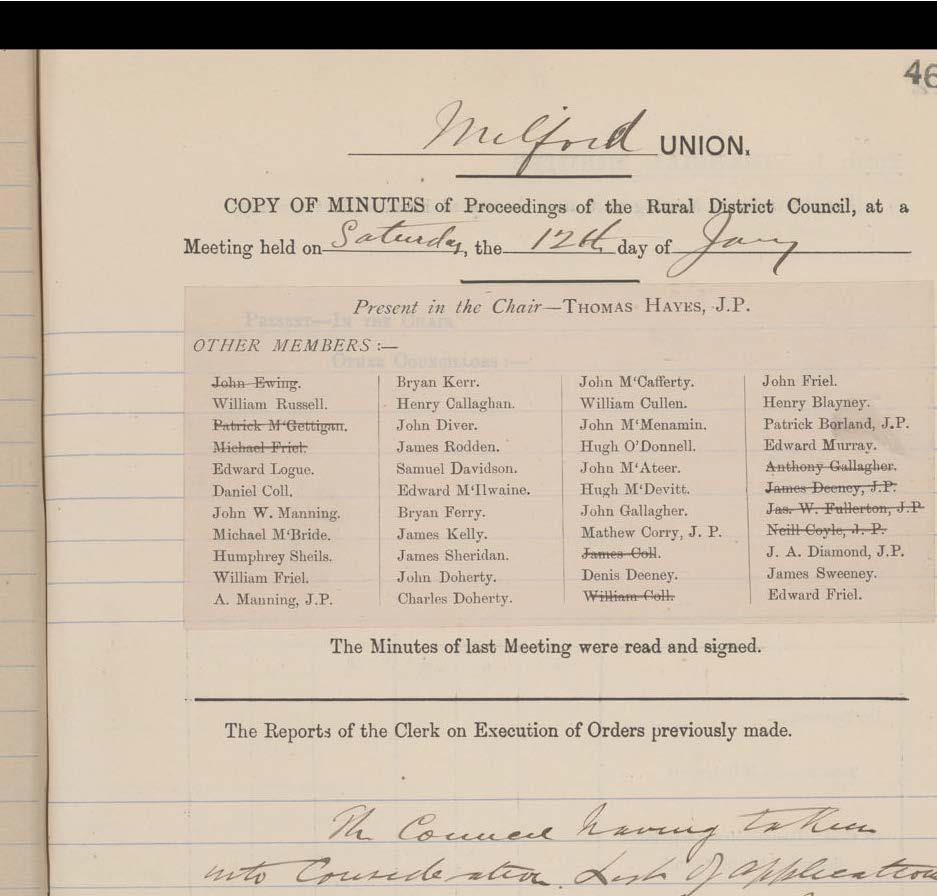 46
Milford UNION.
COPY OF MINUTES of Proceedings of the Rural District Council, at a
Meeting held on Saturday, the 12th day of Jany
Present in the Chair—THOMAS HAYES, J.P.
OTHER MEMBERS :—
John Ewing.
William Russell.
Patrick M‘Gettigan.
Michael Friel.
Edward Logue.
Daniel Coll.
John W. Manning.
Michael M‘Bride.
Humphrey Sheils.
William Friel.
A. Manning, J.P.
Bryan Kerr.
Henry Callaghan.
John Diver.
James Rodden.
Samuel Davidson.
Edward M‘Ilwaine.
Bryan Ferry.
James Kelly.
James Sheridan.
John Doherty.
Charles Doherty.
John M‘Cafferty.
William Cullen.
John M‘Menamin.
Hugh O’Donnell.
John M‘Ateer.
Hugh M‘Devitt.
John Gallagher.
Mathew Corry, J. P.
James Coll.
Denis Deeney.
William Coll.
John Friel.
Henry Blayney.
Patrick Borland, J.P.
Edward Murray.
Anthony Gallagher.
James Deeney, J.P.
Jas. W. Fullerton, J.P
Neill Coyle, J. P.
J. A. Diamond, J.P.
James Sweeney.
Edward Friel.
The Minutes of last Meeting were read and signed.
The Reports of the Clerk on Execution of Orders previously made.
The Council having taken
into Consideration. List of application